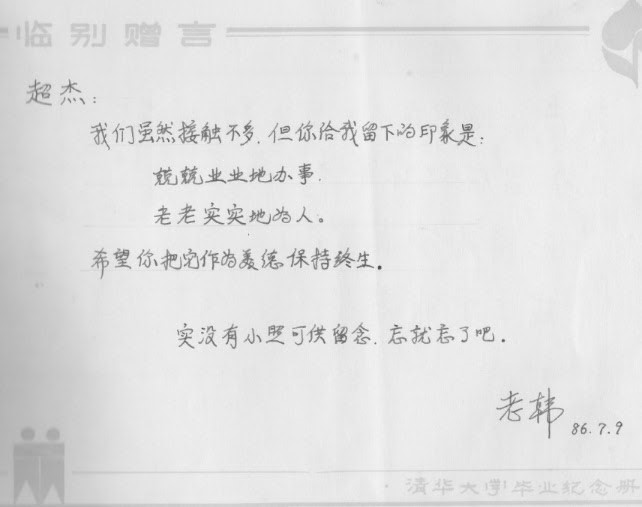 临别赠言
超杰：
我们虽然接触不多，但你给我留下的印象是：
兢兢业业地办事，
老老实实地为人。
希望你把它作为美德保持终生。
实没有小照可供留念，忘就忘了吧。
老韩
86.7.9
·清华大学毕业纪念册